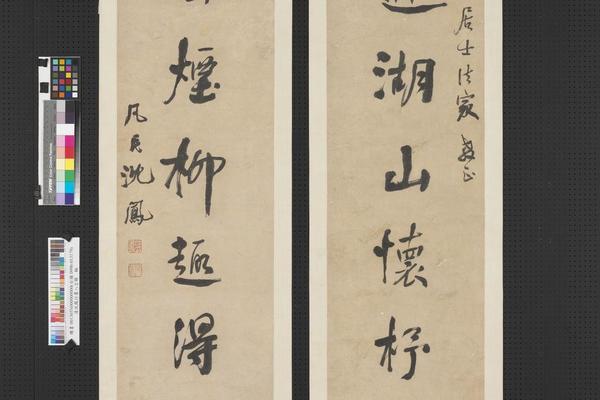 居士法家教正
湖山懷抒
煙柳趣得
凡民沈鳳